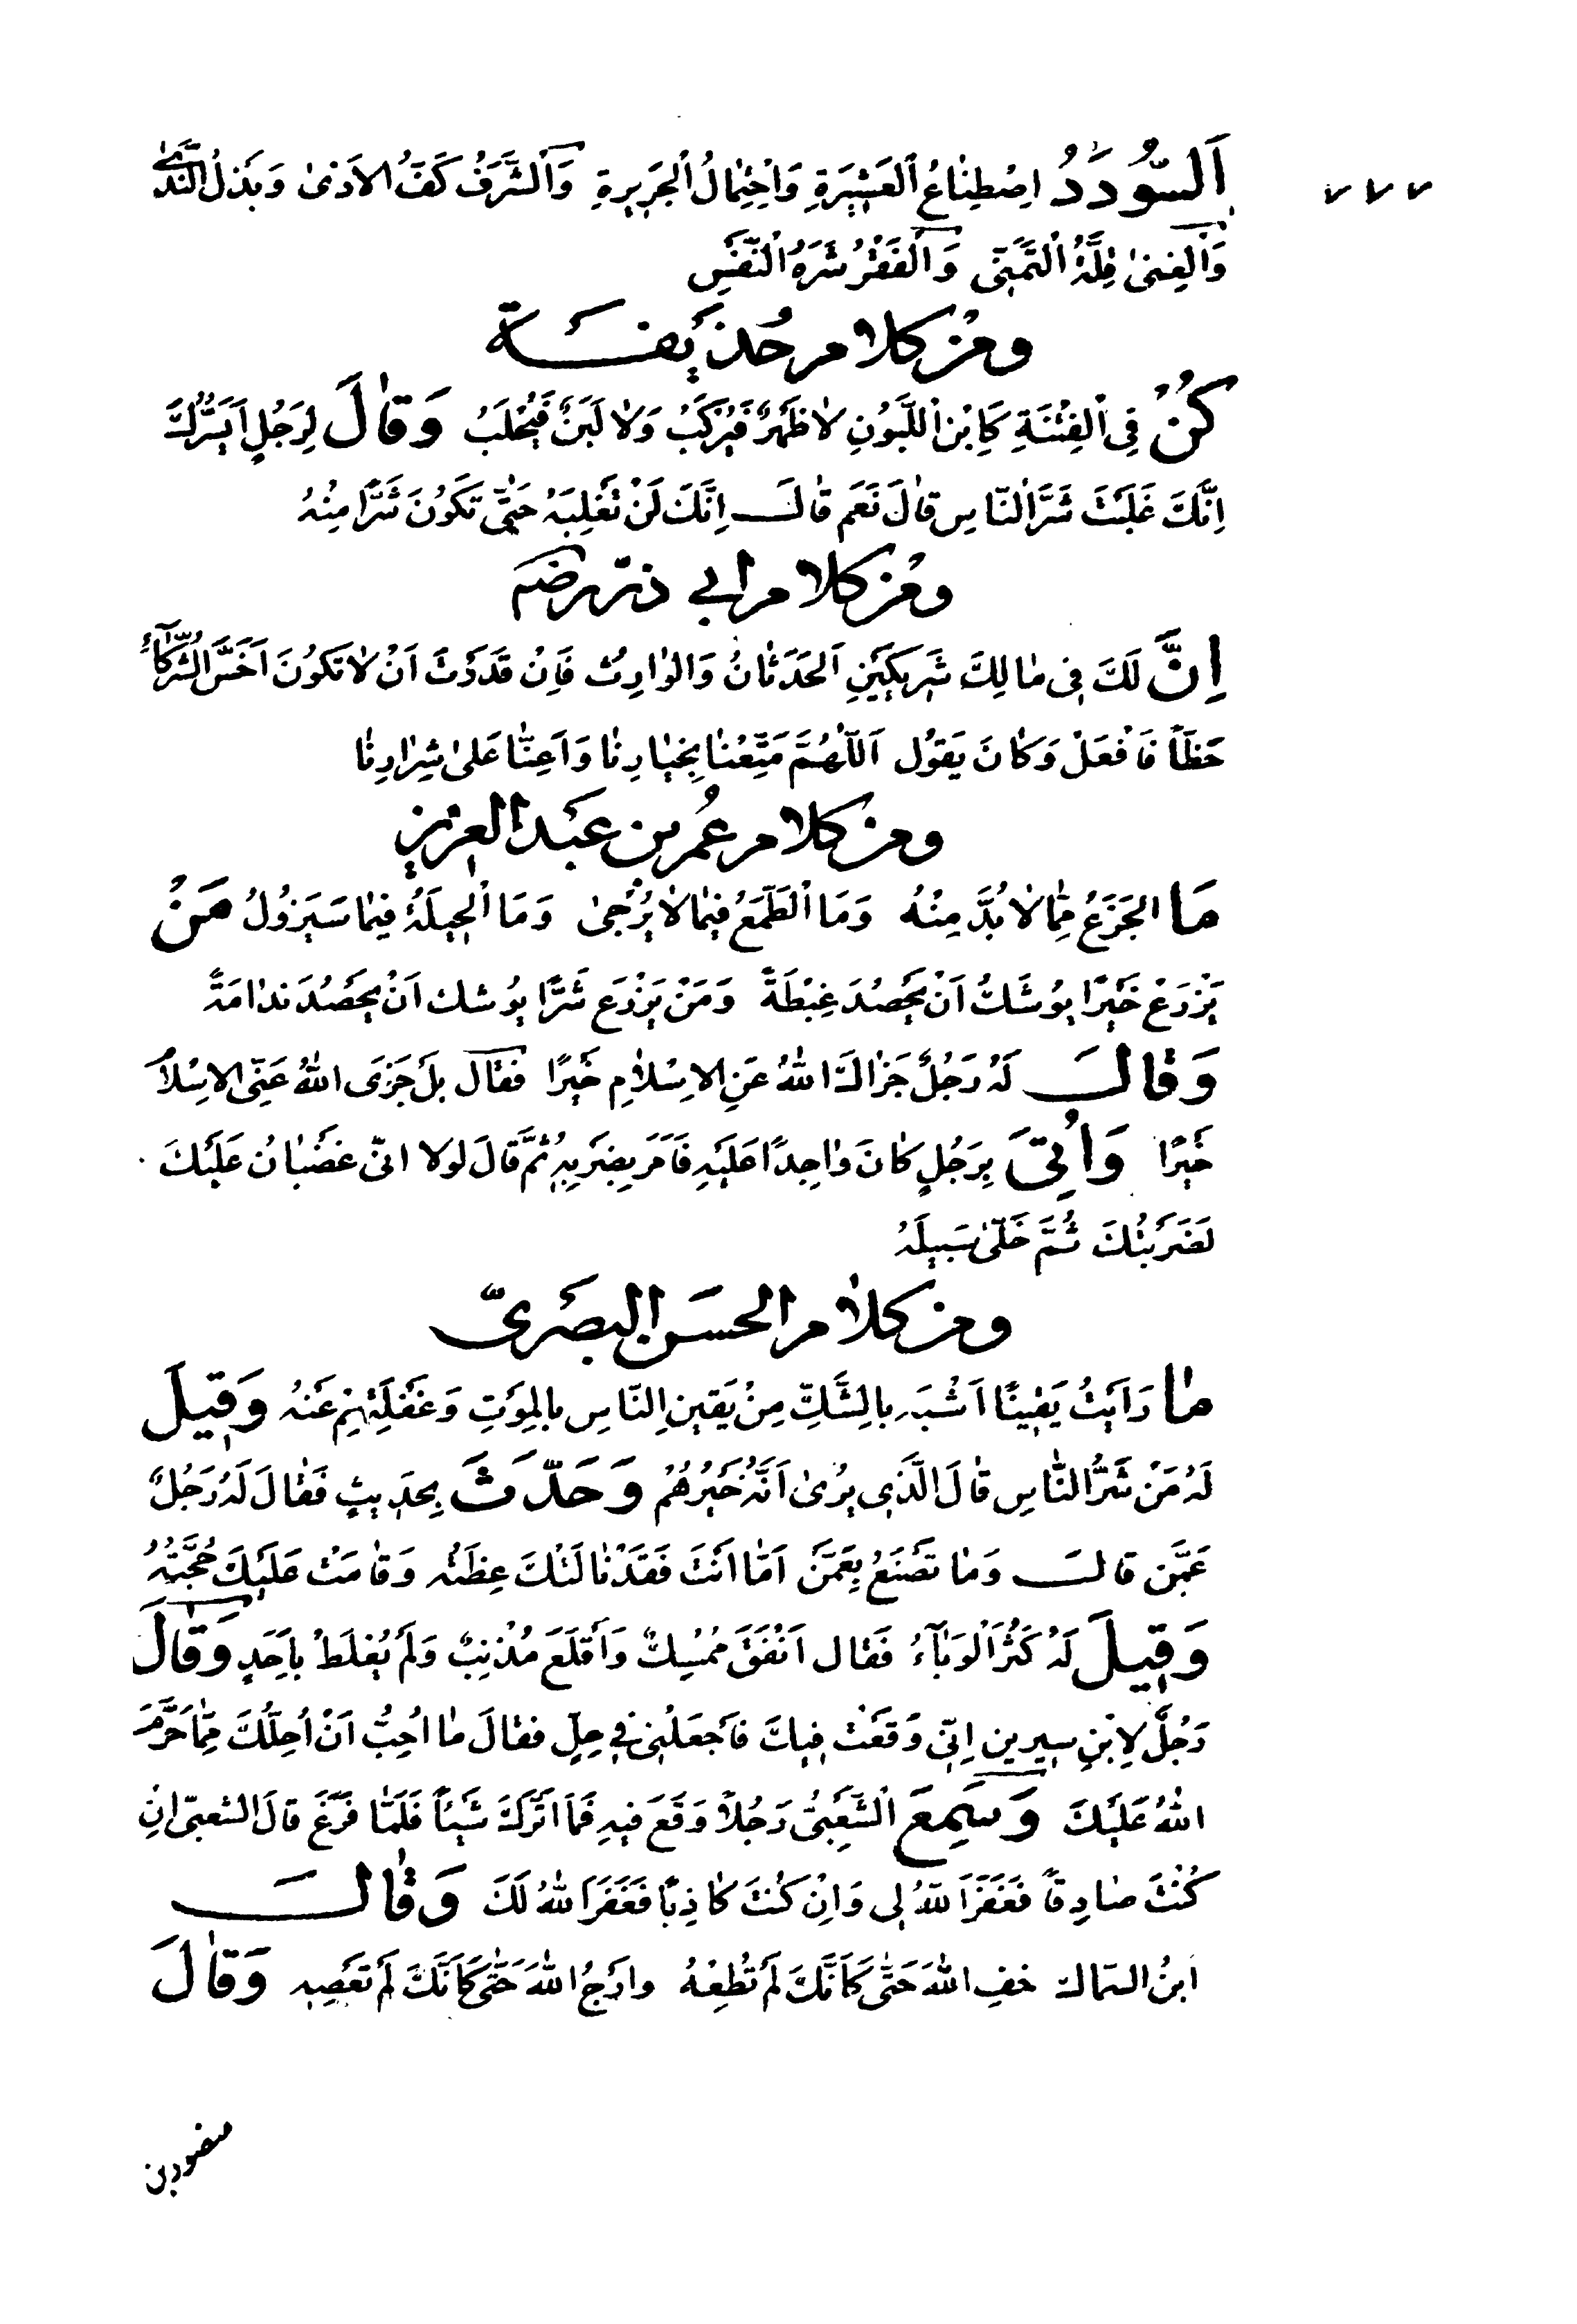 اَلسُّودَدُ اصْطِنَاعُ اَلْعَشِيرَةِ وَاحْتِمَالُ اْلجَرِيرَةِ وَاَلشَّرَفُ كَفُّ الاَذىٰ وَبَذلُ النَّدىٰ
وَالْغِنىٰ قِلَّةُ التَّمَنّي وَالْفَقْرُ شَرَهُ النَّفْسِ
ومن كلام حُذَيفَة
كُنْ فِي اْلفِتْنَةِ كَابْنِ اللَّبُونِ لاٰ ظَهْرٌ فَيُرْكَبُ وَلاٰ لَبَنٌ فَيُحْلَبُ وَقاٰلَ لِرَجُلٍ اَيَسُرُّكَ
اِنَّكَ غَلَبْتَ شَرَّ النّاسِ قاٰلَ نَعَم قاٰلَ اِنَّكَ لَنْ تَغْلِبَهُ حَتّٰى تَكُونَ شَرًّا مِنْهُ
ومن كلام ابي ذرّ رضه
اِنَّ لَكَ فِي ماٰلِكَ شَرِيكَيْنِ اَلحَدَثاٰنُ وَالوٰارِثُ فَاِنْ قَدَرْتَ اَنْ لاٰ تَكُونَ اَخَسَّ الشُّرَكاٰءِ
حَظّاً فَافْعَلْ وَكاٰنَ يَقوُلُ اَللّٰهُمَّ مَتِّعْناٰ بِخِيٰارِناٰ وَاَعِنّٰا عَلىٰ شِرٰارِناٰ
ومن كلام عُمر بن عَبد العزيز
مَا الجَزَعُ مِمّٰا لاٰ بُدَّ مِنْهُ وَمَا اْلطَّمَعُ فِيمٰا لاٰ يُرْجىٰ وَمَا اْلحِيلَةُ فِيمٰا سَيَزُولُ مَنْ
يَزْرَعْ خَيْرًا يوُشَكُ اَنْ يَحْصُدَ غِبْطَةً وَمَنْ يَزْرَع شَرًّا يوُشك اَنْ يَحْصُدَ ندٰامَةً
وَقاٰلَ لَهُ رَجُلٌ جَزٰاكَ اللّٰهُ عَنِ الاِسْلاٰمِ خَيْرًا فقاٰل بَلْ جَزَى اللّٰهُ عَنِّي الاِسْلاٰمَ
خَيْرًا وَاُتِيَ بِرَجُلٍ كاٰنَ وٰاجِدًا عَلَيْهِ فَاَمَرَ بِضَرْبِهِ ثُمَّ قاٰلَ لولا انّي غضْباٰن عَلَيْكَ
لَضَرَبْتُكَ ثُمَّ خَلّىٰ سَبيلَهُ
ومن كلاٰم الحسَن البصَريّ
ماٰ رَاَيْتُ يَقِينًا اَشْبَهَ بالِشَّكِّ مِنْ يَقينِ النّاسِ بالمَوْتِ وَغَفْلَتِهِمْ عَنْهُ وَقيلَ
لَهُ مَنْ شَرُّ النّاٰسِ قاٰلَ الَّذي يُرىٰ اَنَّهُ خَيْرُهُمْ وَحَدَّثَ بِحَديثٍ فَقاٰلَ لَهُ رَجُلٌ
عَمَّن قالَ وَماٰ تَصْنَعُ بِعَمَّنْ اَمّٰا اَنْتَ فَقَدْ نٰالَتْكَ عِظَتُه وَقٰامَتْ عَلَيْكَ حُجَّتُهُ
وَقيلَ لَهُ كَثُرَ الْوَبٰآءُ فَقاٰل اَنْفَقَ مُمْسِكٌ وَاَقْلَعَ مُذْنِبٌ وَلَمْ يُغْلَطْ بأَحَدٍ وَقاٰلَ
رَجُلٌ لاِبْنِ سيرين اِنّي وَقَعْتُ فيكَ فاَجعَلْني في حِلٍّ فقاٰلَ ماٰ اُحِبُّ اَنْ اُحِلَّكَ مِمّٰا حَرَّمَ
اللّٰهُ عَلَيْكَ وَسَمِعَ الْشَّعْبِيُّ رَجُلاً وَقَعَ فيهِ فَمٰا تَرَكَ شَيْئًا فَلَمّٰا فَرَغَ قاٰلَ الشعبيّ اِن
كُنْتَ صٰادِقًا فَغَفَرَ اَللّٰهُ لي وَاِنْ كُنْتَ كاٰذِبًا فَغَفَرَ اَللّٰهُ لَكَ وَقاٰلَ
ابنُ السّماك خفِ اللّٰهَ حَتّٰى كَاَنَّكَ لَمْ تُطِعْهُ وارْجُ اللّٰهَ حَتّٰى كَاَنَّكَ لَمْ تَعْصِهِ وَقاٰلَ